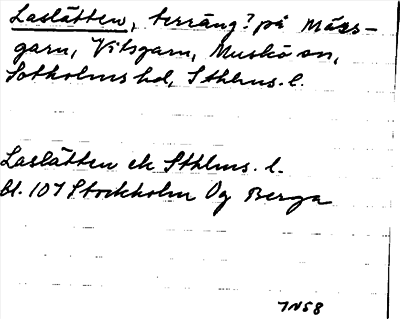 Laslätten, terräng? på Märs-
garn, Vitsgarn, Muskö sn,
Sotholms hd, Sthlms. l.
Laslätten ek Sthlms. l.
bl. 107 Stockholm Og Berga
7N58